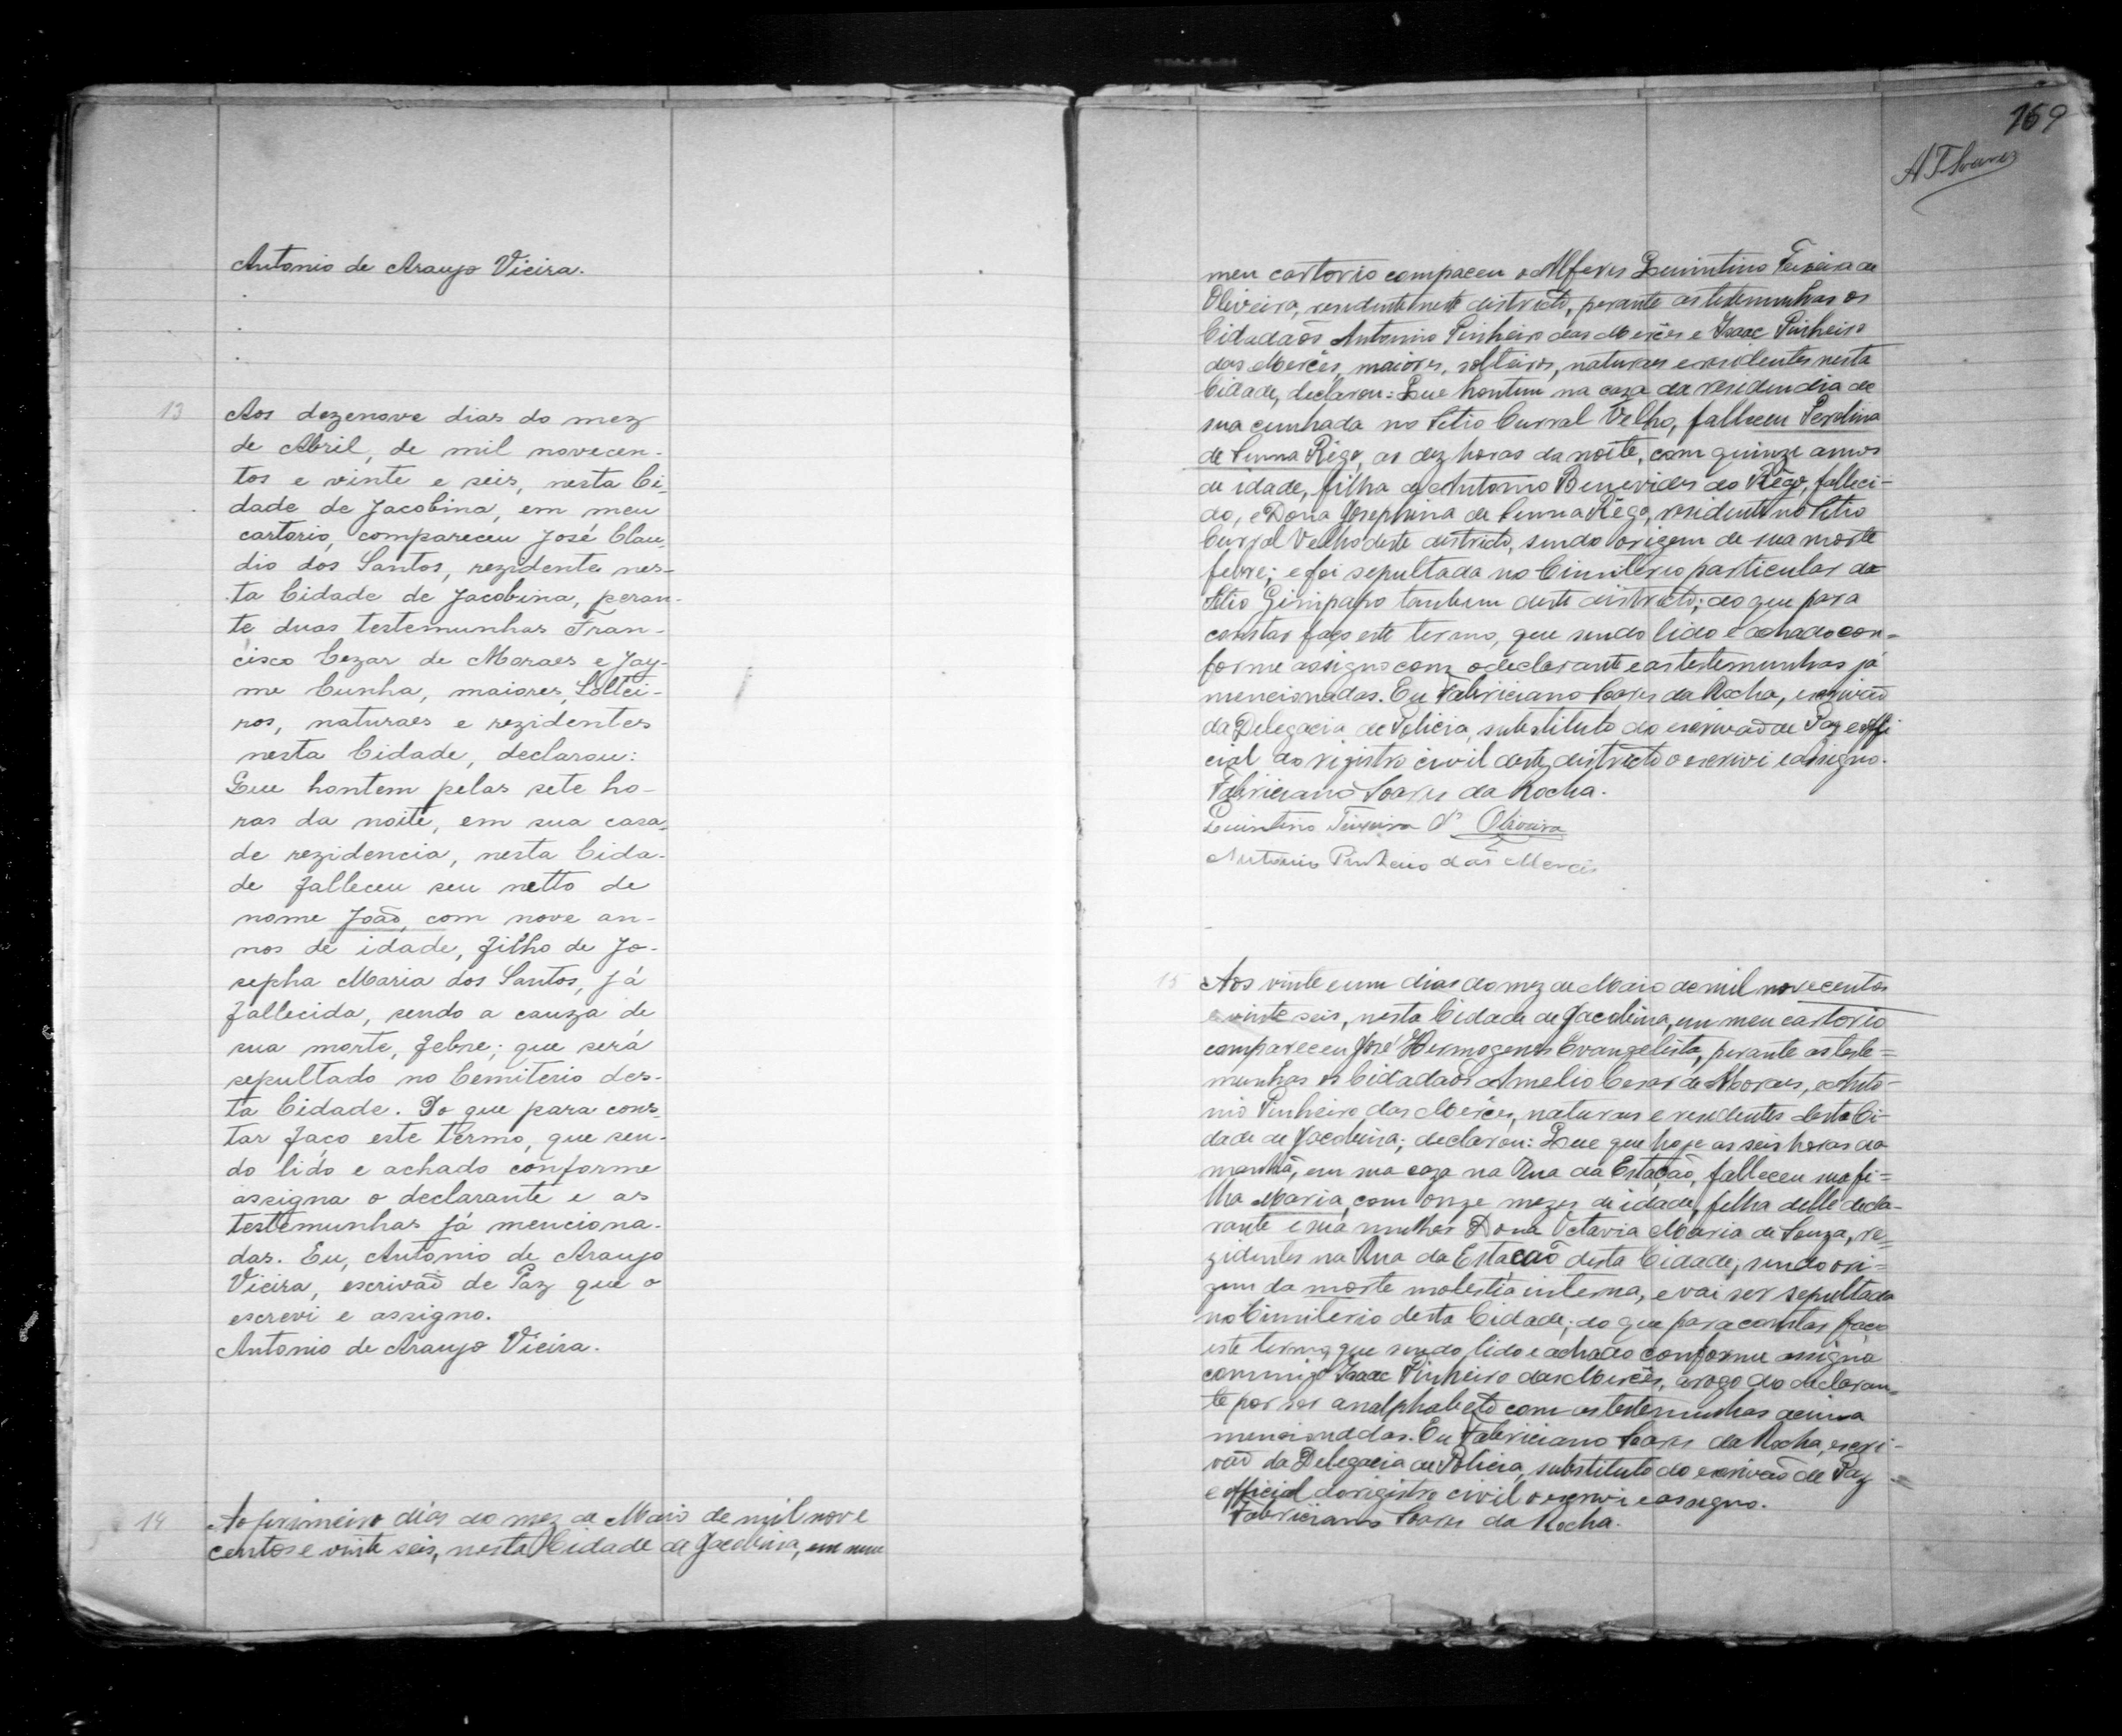 Antonio de Araujo Vieira.
13
Aos dezenove dias do mez
de Abril, de mil novecen-
tos e vinte e seis, nesta Ci-
dade de Jacobina, em meu
cartorio, compareceu José Clau-
dio dos Santos, rezidente nes-
ta Cidade de Jacobina, peran-
te duas testemunhas Fran-
cisco Cezar de Moraes e Jay-
me Cunha, maiores, Soltei-
ros, naturaes e rezidentes
nesta Cidade, declarou:
Que hontem pelas sete ho-
ras da noite, em sua casa
de rezidencia, nesta Cida-
de falleceu seu netto de
nome João, com nove an-
nos de idade, filho de Jo-
sepha Maria dos Santos, já
fallecida, sendo a cauza de
sua morte, febre; que será
sepultado no Cemiterio des-
ta Cidade. Do que para cons-
tar faço este termo, que sen-
do lido e achado conforme
assigna o declarante e as
testemunhas já menciona-
das. Eu, Antonio de Araujo
Vieira, escrivaõ de Paz que o
escrevi e assigno.
Antonio de Araujo Vieira.
14
Ao primeiro dias do mez de Maio de mil nove
centos e vinte seis, nesta Cidade de Jacobina, em meu
169
meu cartorio compaceu o Alferes Quintino Teixeira de
Oliveira, residente neste districto, perante as testemunhas os
Cidadaõs Antonio Pinheiro das Mercês e Isaac Pinheiro
das Mercês, maiores, solteiros, naturaes e residentes nesta
Cidade, declarou: Que hontem na caza da residendia de
sua cunhada no Sitio Curral Velho, falleceu Perolina
de Senna Rêgo, as dez horas da noite, com quinze annos
de idade, filha de Antonio Benevides do Rêgo, falleci-
do, e Dona Josephina de Senna Rêgo, residente no Sitio
Curral Velho deste districto, sendo origem de sua morte
febre; e foi sepultada no Cimiterio particular do
Sitio Genipapo tambem deste districto; do que para
constar faço este termo, que sendo lido e achado con=
forme assigno com o declarante e as testemunhas já
mencionadas. Eu Fabriciano Soares da Rocha, escrivaõ
da Delegacia de Policia, substituto do escrivaõ de Paz e offi
cial do rigistro civil deste districto o escrivi e assigno.
Fabriciano Soares da Rocha.
Quintino Teixeira d' Oliveira
Antonio Pinheiro das Merces
15
Aos vinte e um dias do mez de Maio de mil novecentos
e vinte seis, nesta Cidade de Jacobina, em meu cartorio
compareceu José Hermogenes Evangelista, perante as teste=
munhas os Cidadaõs Amelio Cesar de Moraes, e Anto-
nio Pinheiro das Mercês, naturaes e residentes desta Ci-
dade de Jacobina; declarou: Que que hoje as seis horas da
manhã, em sua caza na Rua da Estação, falleceu sua fi=
lha Maria, com onze mezes de idade, filha delle decla-
rante e sua mulher Dona Octavia Maria de Souza, re=
zidentes na Rua da Estacaõ desta Cidade, sendo ori=
gem da morte molestia interna, e vai ser sepultada
no Cimiterio desta Cidade; do que para constar faço
este termo, que sendo lido e achado conforme assigna
commigo Isaac Pinheiro das Mercês, a rogo do declaran=
te por ser analphabeto com as testemunhas acima
mencionadas. Eu Fabriciano Soares da Rocha, escri-
vaõ da Delegacia de Policia, substituto do escrivaõ de Paz
e official do rigistro civil o escrivi e assigno.
Fabriciano Soares da Rocha.